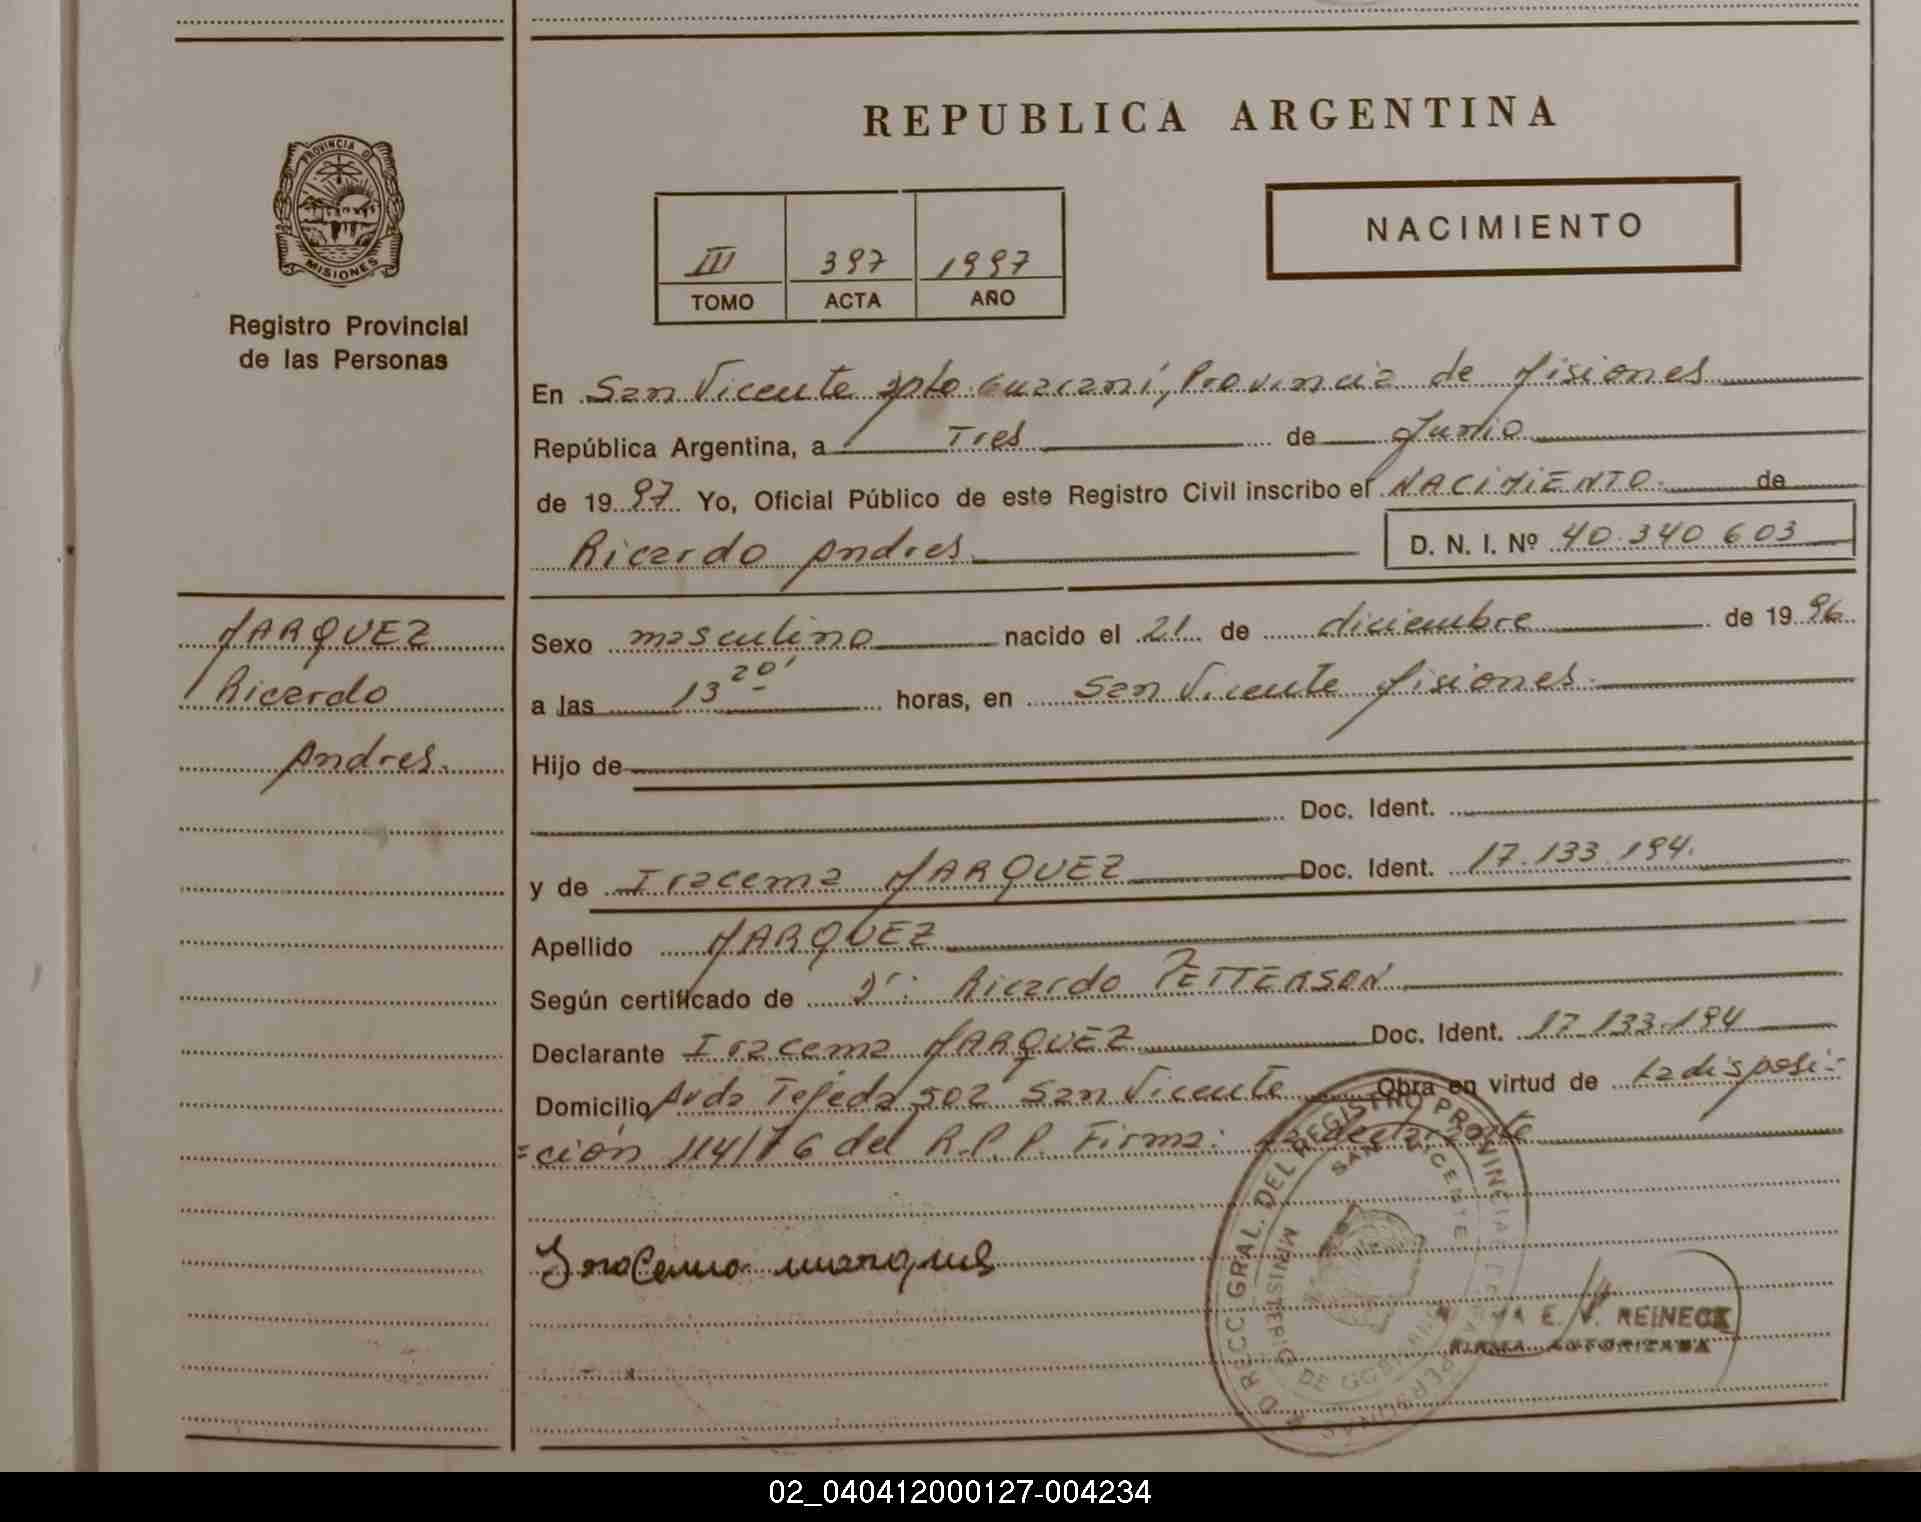 REPUBLICA ARGENTINA
PROVINCIA DE
MISIONES
Registro Provincial
de las Personas
NACIMIENTO
III 397 1997
TOMO ACTA AÑO
En San Vicente Dpto Guaraní, Provincia de Misiones
República Argentina, a Tres de Junio
de 1997 Yo, Oficial Público de este Registro Civil inscribo el NACIMIENTO de
Ricardo Andres D. N. I. Nº 40.340.603
MARQUEZ
Ricardo
Andres.
Sexo masculino nacido el 21 de diciembre de 1996
a las 13 20' horas, en San Vicente Misiones.
Hijo de
Doc. Ident.
y de Iracema MARQUEZ Doc. Ident. 17.133.194.
Apellido MARQUEZ
Según certificado de Dr: Ricardo PETTERSON
Declarante Iracema MARQUEZ Doc. Ident. 17.133.194
Domicilio Avda Tejeda 502 San Vicente Obra en virtud de La disposi-
=ción 114/76 del R.P.P. Firma: La declarante
DIRECC. GRAL. DEL REGISTRO PROVINCIAL DE LAS PERSONAS
SAN VICENTE
MINISTERIO DE GOBIERNO
Iracema marques
E. V. REINECK
FIRMA AUTORIZADA
02_040412000127-004234